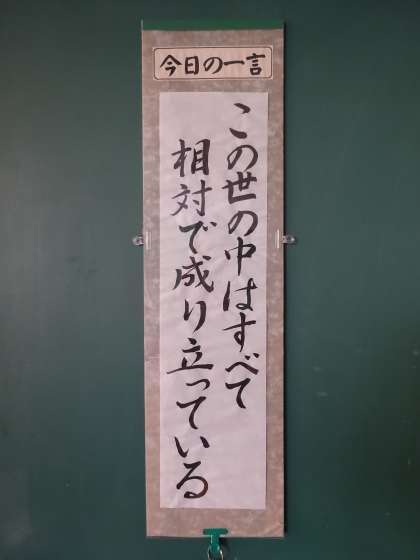 今日の一言
この世の中はすべて
相対で成り立っている